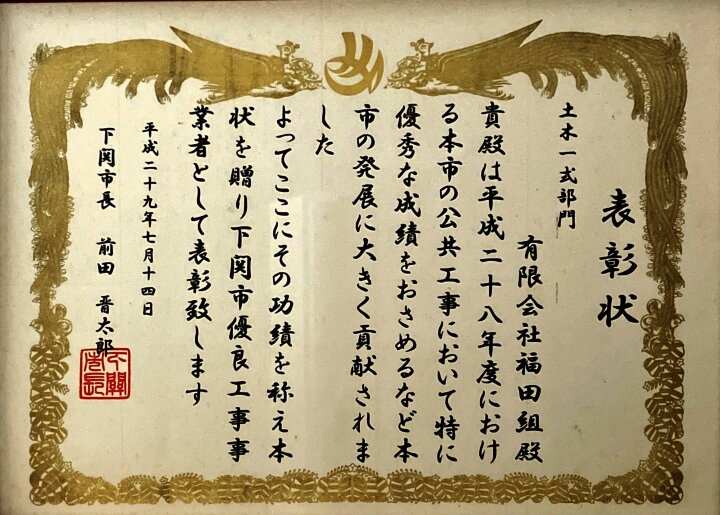 表彰状
土木一式部門
有限会社福田組殿
貴殿は平成二十八年度におけ
る本市の公共工事において特に
優秀な成績をおさめるなど本
市の発展に大きく貢献されま
した
よってここにその功績を称え本
状を贈り下関市優良工事事
業者として表彰致します
平成二十九年七月十四日
下関市長 前田 晋太郎
下關市長